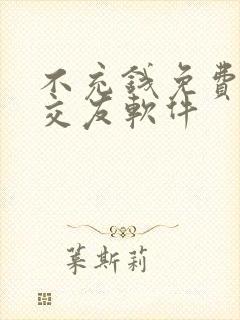 不充錢免費
交友軟件
萊斯莉